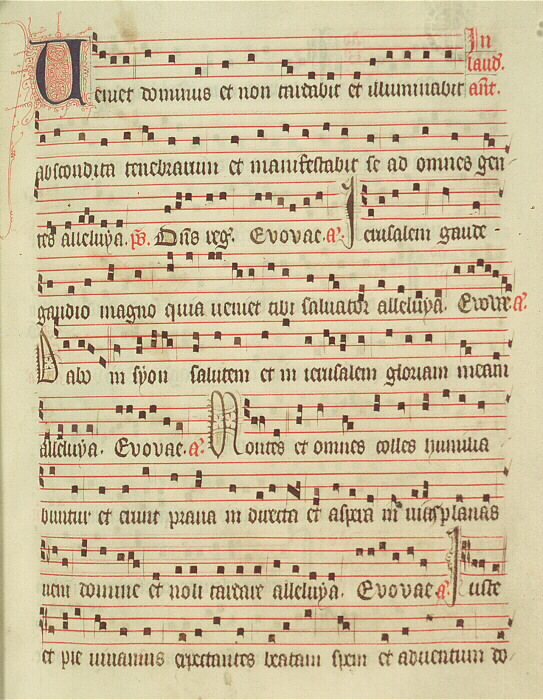 In
laud.
Veniet dominus et non tardabit et illuminabit ant.
abscondita tenebrarum et manifestabit se ad omnes gen
tes alleluya. ps. Dns reg. Evovae. a. Jerusalem gaude -
gaudio magno quia veniet tibi salvator alleluya. Evovae a.
Dabo in syon salutem et in ierusalem gloriam meam
alleluya. Evovae. a. Montes et omnes colles humilia
buntur et erunt prava in directa et aspera in vias planas
veni domine et noli tardare alleluya. Evovae a. Iuste
et pie vivamus expectantes beatam spem et adventum do-